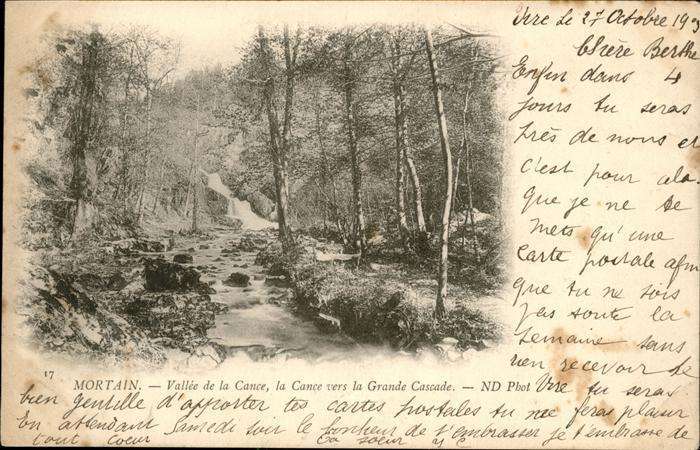 Vire Le 27 Octobre 190
Chère Berthe
Enfin dans 4
jours tu seras
près de nous et
c'est pour cela
que je ne te
mets qu'une
Carte postale afin
que tu ne sois
pas toute la
Semaine sans
rien recevoir de
Vire tu seras
17
MORTAIN. — Vallée de la Cance, la Cance vers la Grande Cascade. — ND Phot
bien gentille d'apporter tes cartes postales tu me feras plaisir
En attendant Samedi soir le bonheur de t'embrasser je t'embrasse de
tout Coeur Ta soeur